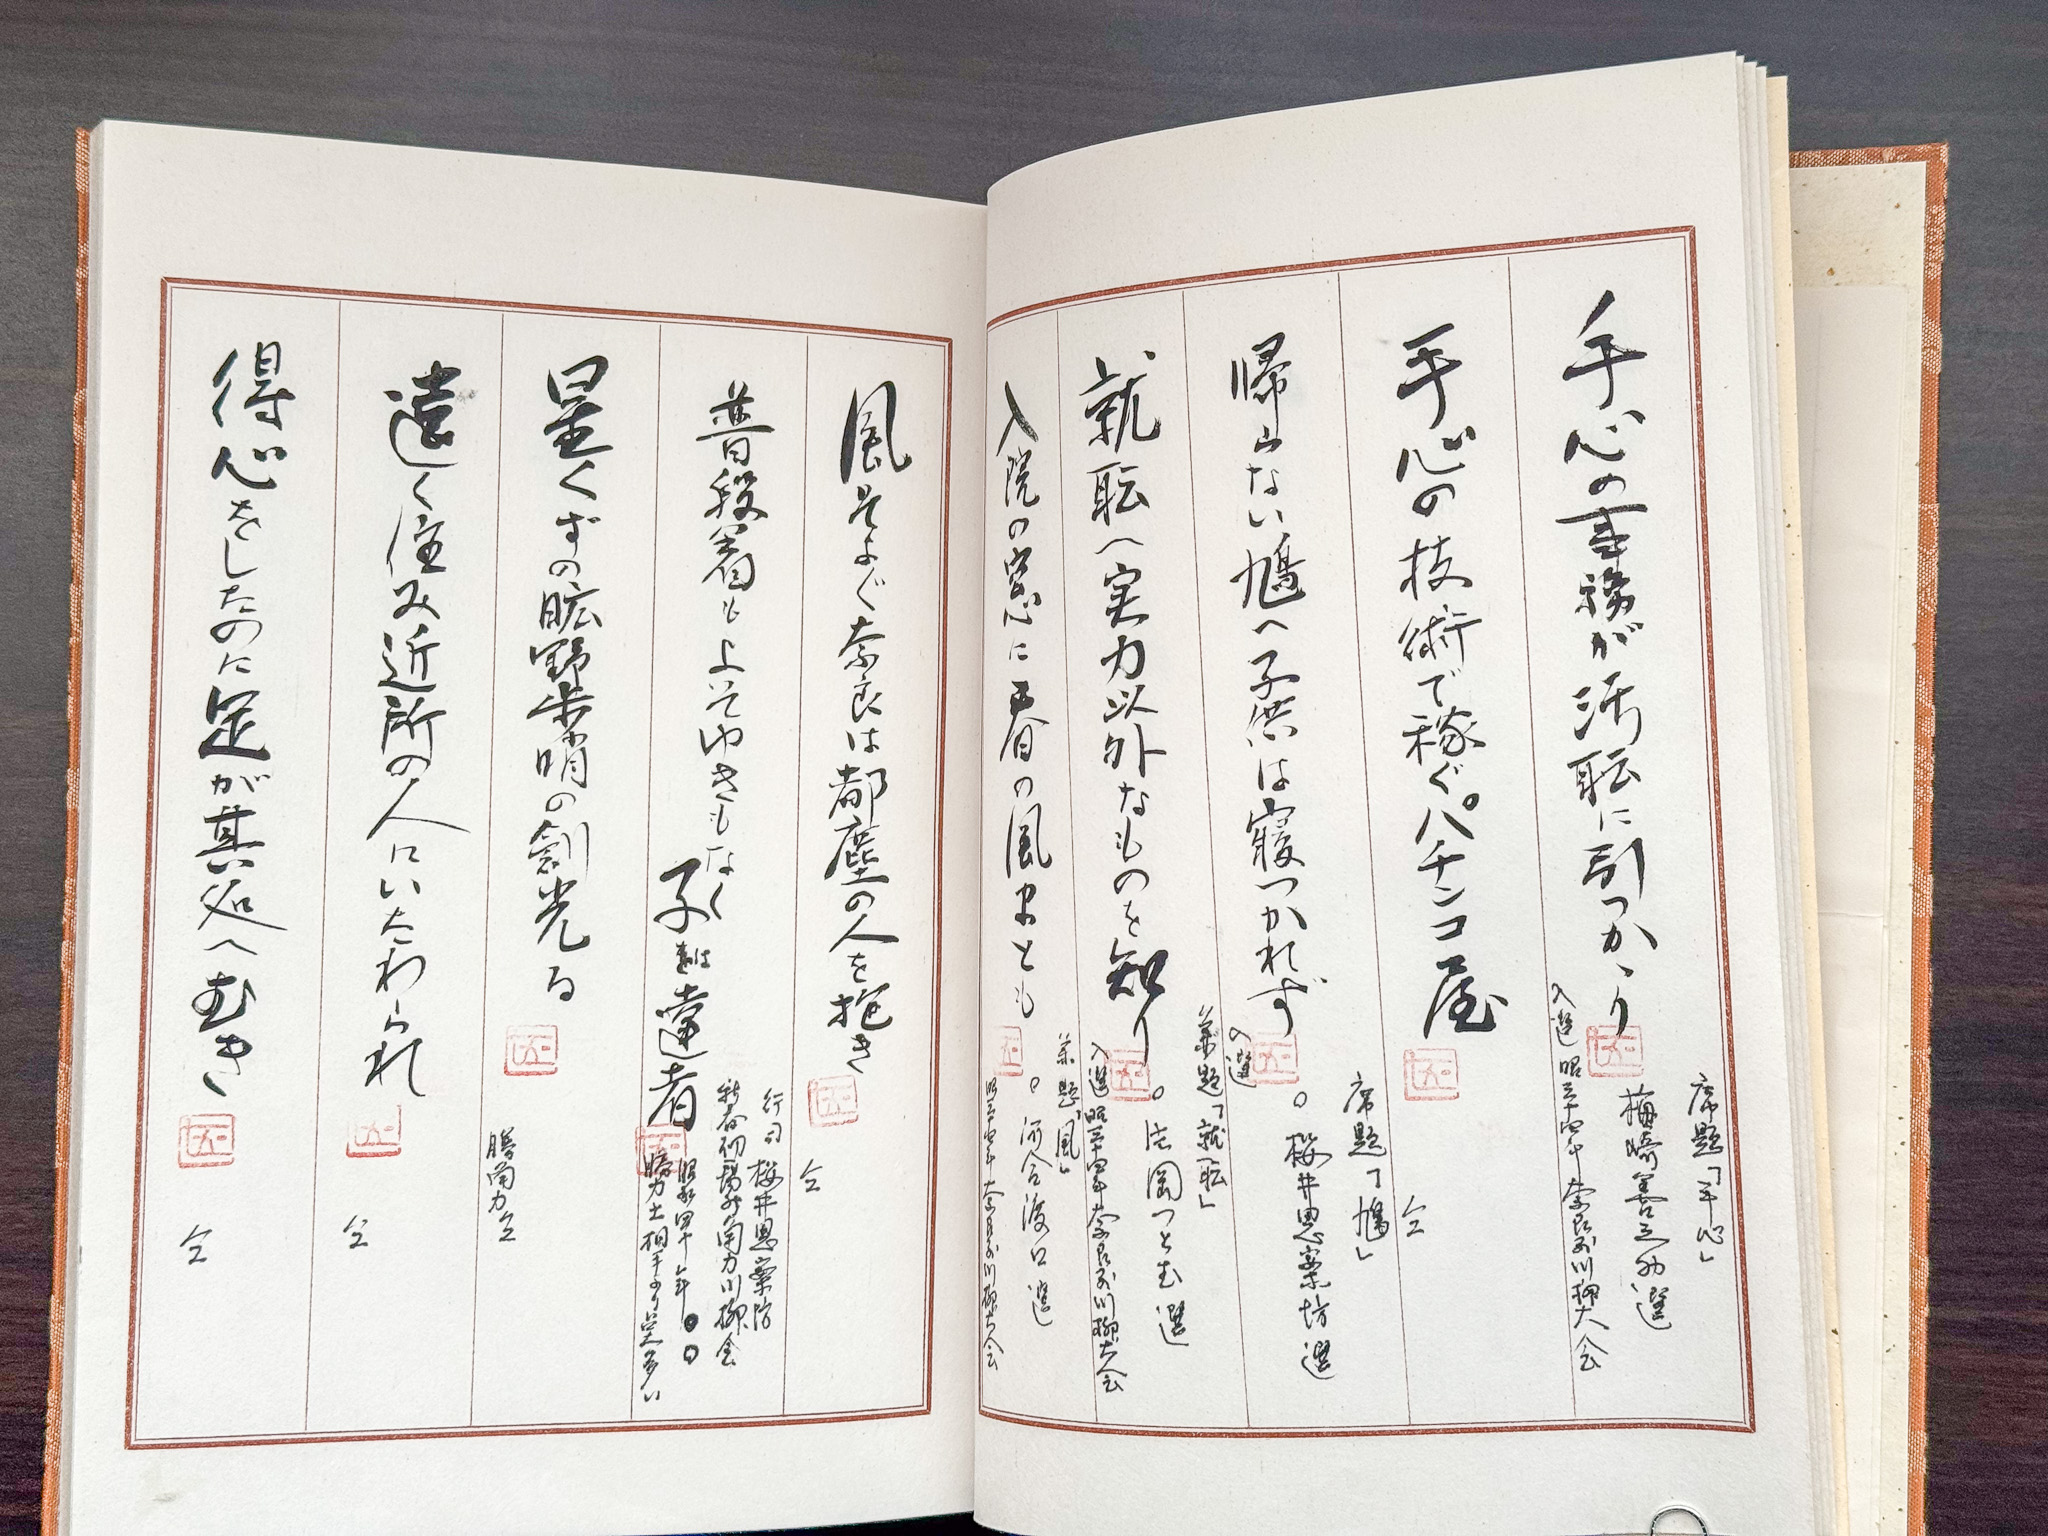 手心の事務が汚耺に引っかゝり
席題「手心」
梅崎善之助選
入選 昭三十四年奈良県川柳大会
手心の技術で稼ぐパチンコ屋
仝
帰らない鳩へ子供は寝つかれず
席題「鳩」
。桜井思案坊選
入選
就耺へ実力以外なものを知り
兼題「就耺」
。岡つとむ選
入選 昭三十四年奈良県川柳大会
入院の窓に春の風まとも
兼題「風」
。河合渡口選
昭三十四年奈良県川柳大会
風そよぐ奈良は都塵の人を抱き
仝
普段着も上そゆきもなく子は達者
行司 桜井思案坊
新春初場所角力川柳会
昭和四十年
勝力士相手より点多い
星くずの広野歩哨の剣光る
勝角力仝
遠く住み近所の人にいたわられ
仝
得心をしたのに足が其処へむき
仝